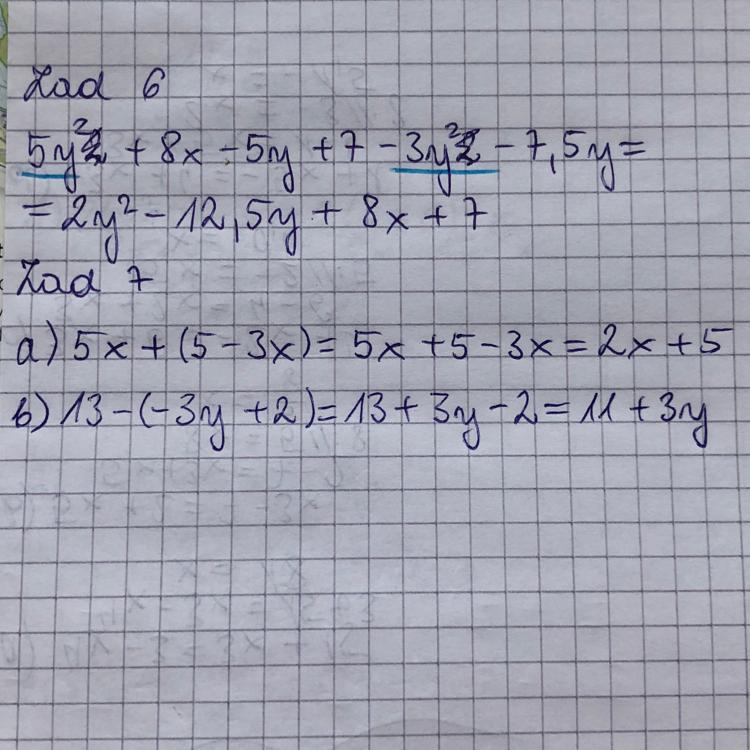 Zad 6
5y² + 8x - 5y + 7 - 3y² - 7,5y =
= 2y² - 12,5y + 8x + 7
Zad 7
a) 5x + (5 - 3x) = 5x + 5 - 3x = 2x + 5
b) 13 - (-3y + 2) = 13 + 3y - 2 = 11 + 3y